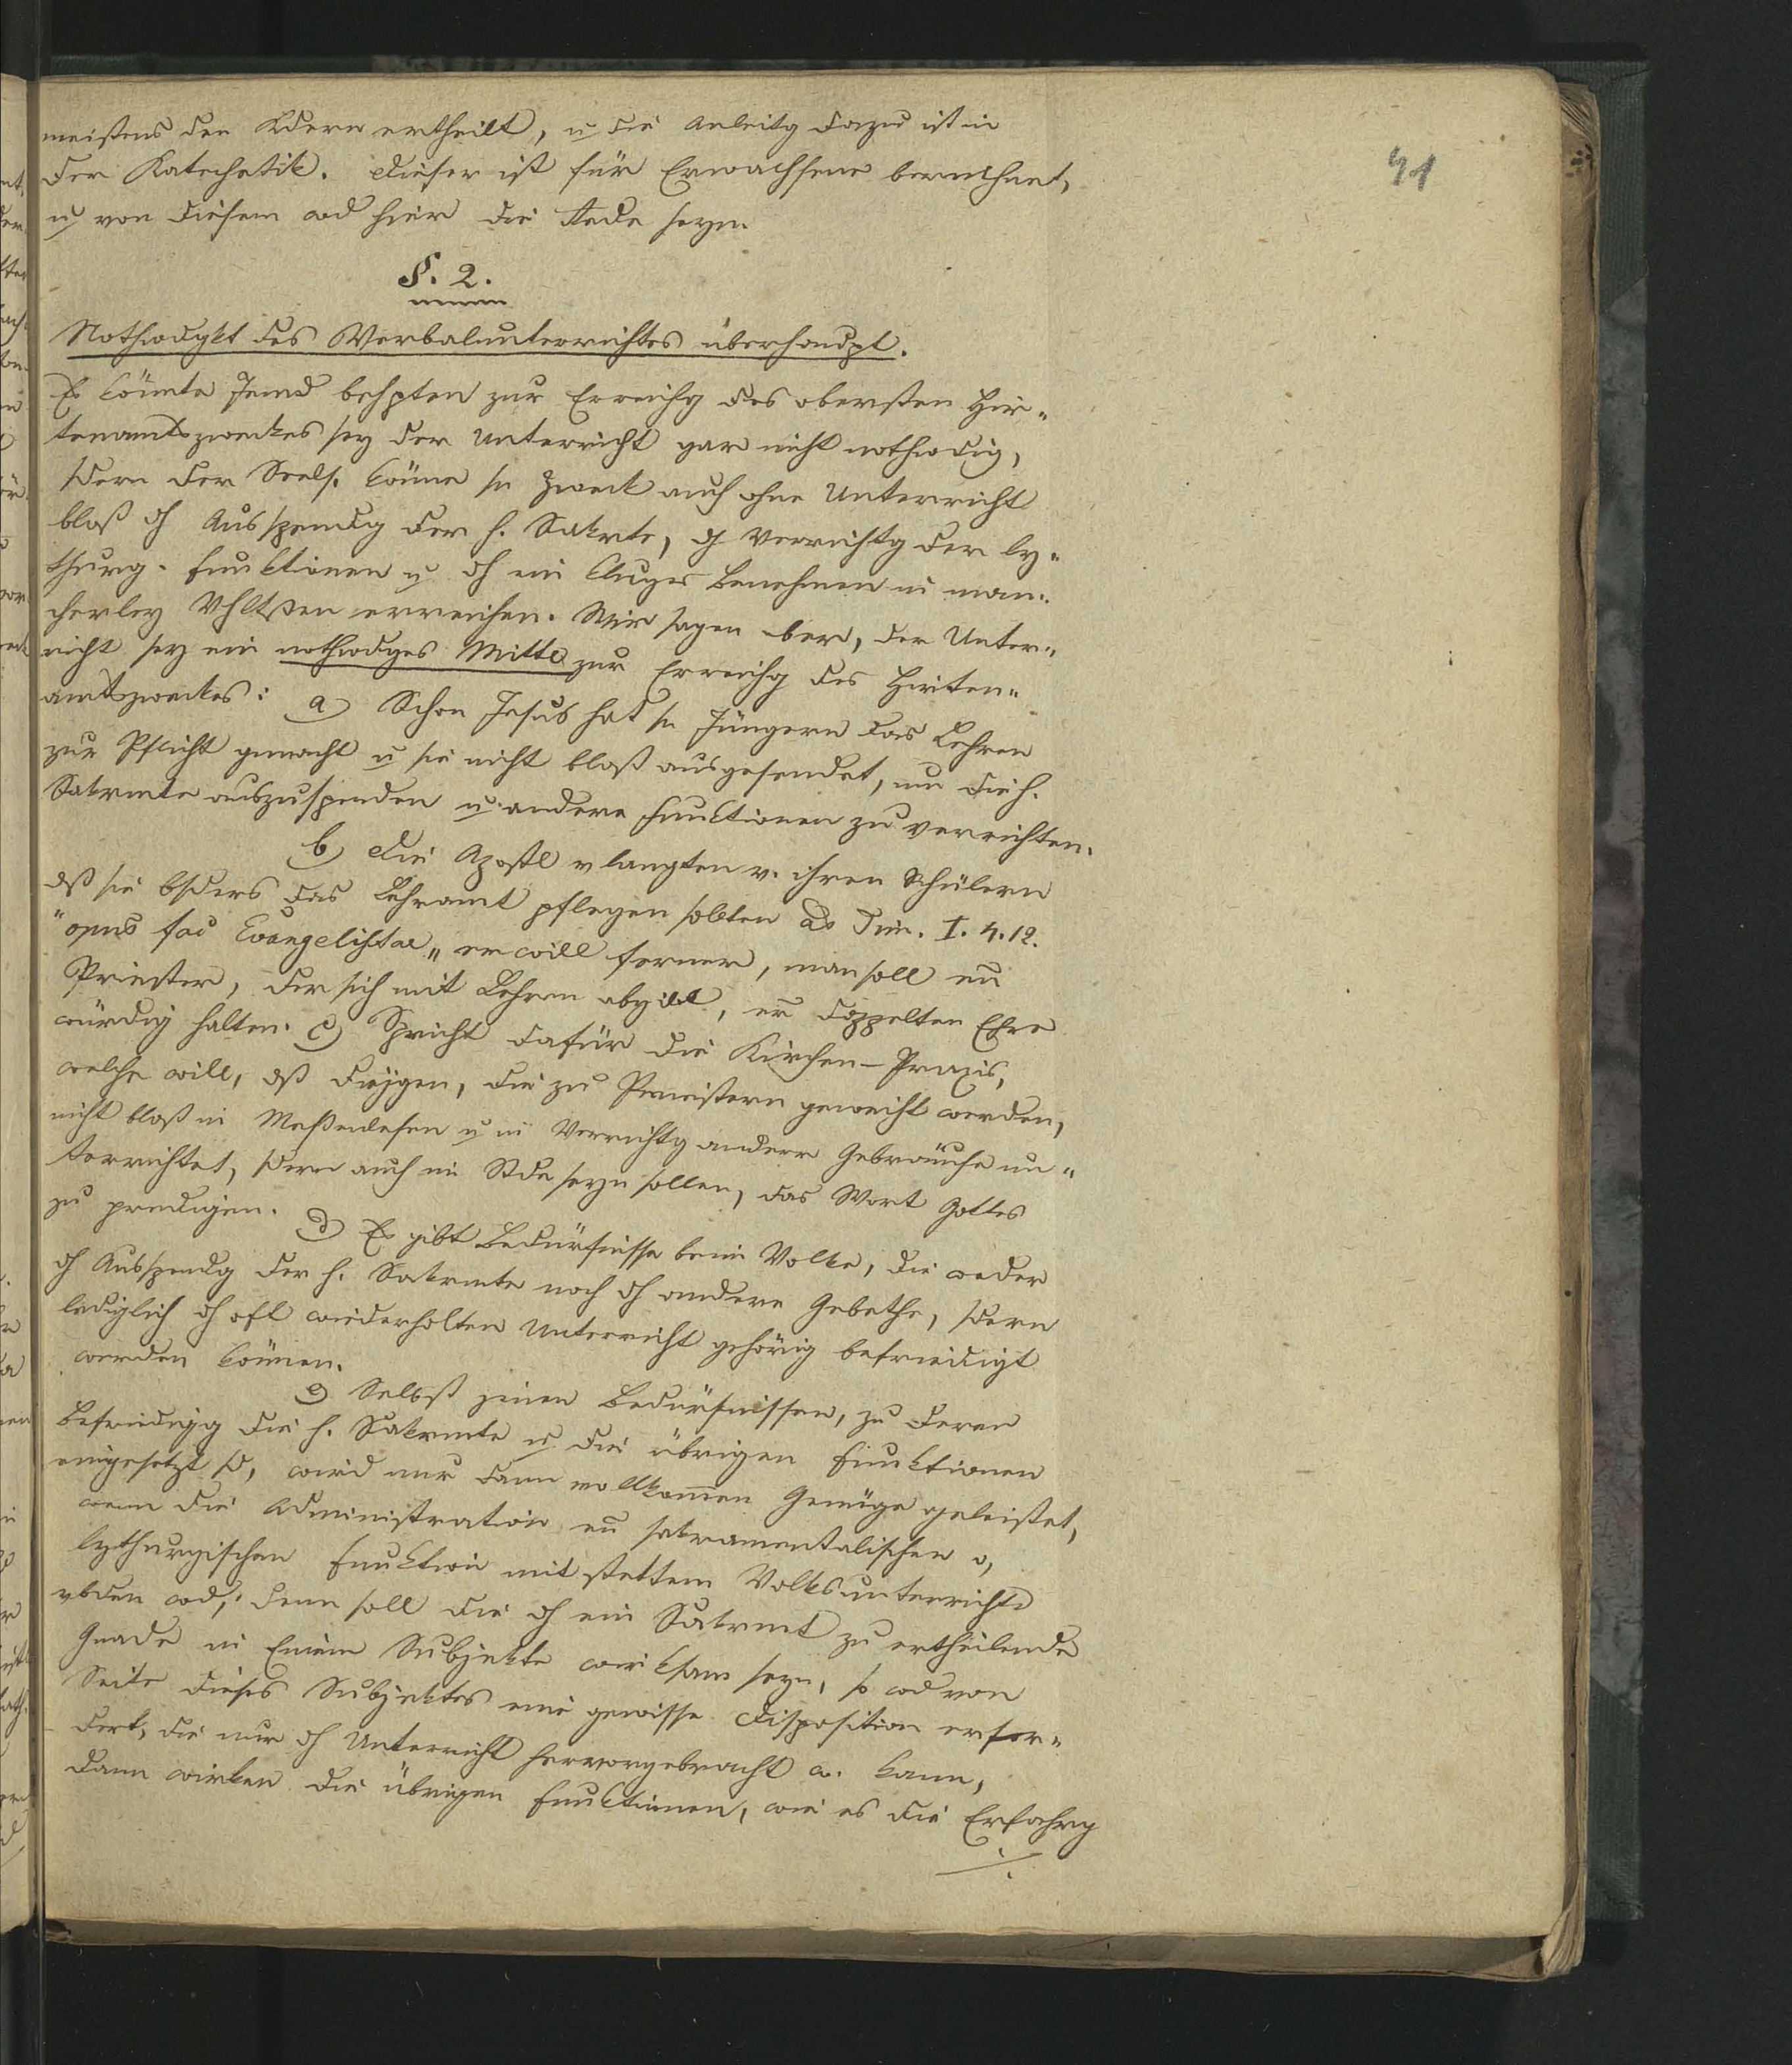 41
meistens den Kdern ertheilt, u die Anleitg dazu ist in
der Katechetik. Dieser ist für Erwachsene berechnet,
u von diesem wd hier die Rede seyn.
§. 2.
Nothwdgkt des Verbalunterrichtes überhaupt.
Es könnte Jemd behpten zur Erreichg des obersten Hir=
tenamtszweckes sey der Unterricht gar nicht nothwdig,
sdern der Seels. könne sn Zweck auch ohne Unterricht
bloß dh Ausspendg der h. Sakrte, dh Verrichtg der ly=
thurg. Funktionen u dh ein kluges Benehmen in man=
cherley Vhltßen erreichen. Wir sagen aber, der Unter=
richt sey ein nothwdges Mittl zur Erreichg des Hirten=
amtszweckes: a) Schon Jesus hat sn Jüngern das Lehren
zur Pflicht gemacht u sie nicht bloß ausgesendet, um die h.
Sakrmte auszuspenden u. andere Funktionen zu verrichten.
b) Die Apostl vlangten v. ihren Schülern
dß sie bsders das Lehramt pflegen sollten ad Tim. I. 4. 12.
"opus fac Evangelistae" er will ferner, man soll en
Priester, der sich mit Lehren abgibt, er doppelten Ehre
würdig halten. c) Spricht dafür die Kirchen-Praxis,
welche will, dß diejgen, die zu Priestern geweiht werden,
nicht bloß in Meßenlesen u in Verrichtg anderer Gebräuche un=
terrichtet, sdern auch im Stde seyn sollen, das Wort Gottes
zu predigen. d) Es gibt Bedürfnisse beim Volke, die weder
dh Ausspendg der h. Sakrmte noch dh andere Gebethe, sdern
lediglich dh oft wiederholten Unterricht gehörig befriedigt
werden können.
e) Selbst jenen Bedürfnissen, zu deren
Befriedigg die h. Sakrmte u die übrigen Funktionen
eingesetzt sd, wird nur dann vollkommen Genüge geleistet,
wenn die Administration en sakramentalischen o,
lythurgischen Funktion mit stettem Volksunterricht
vbden wd; denn soll die dh ein Sakrmt zu ertheilende
Gnade in Einem Subjekte wirksam seyn, so wd von
Seite dieses Subjektes eine gewisse Disposition erfor=
dert, die nur dh Unterricht hervorgebracht w. kann,
dann wirken die übrigen Funktionen, wie es die Erfahrg
./.